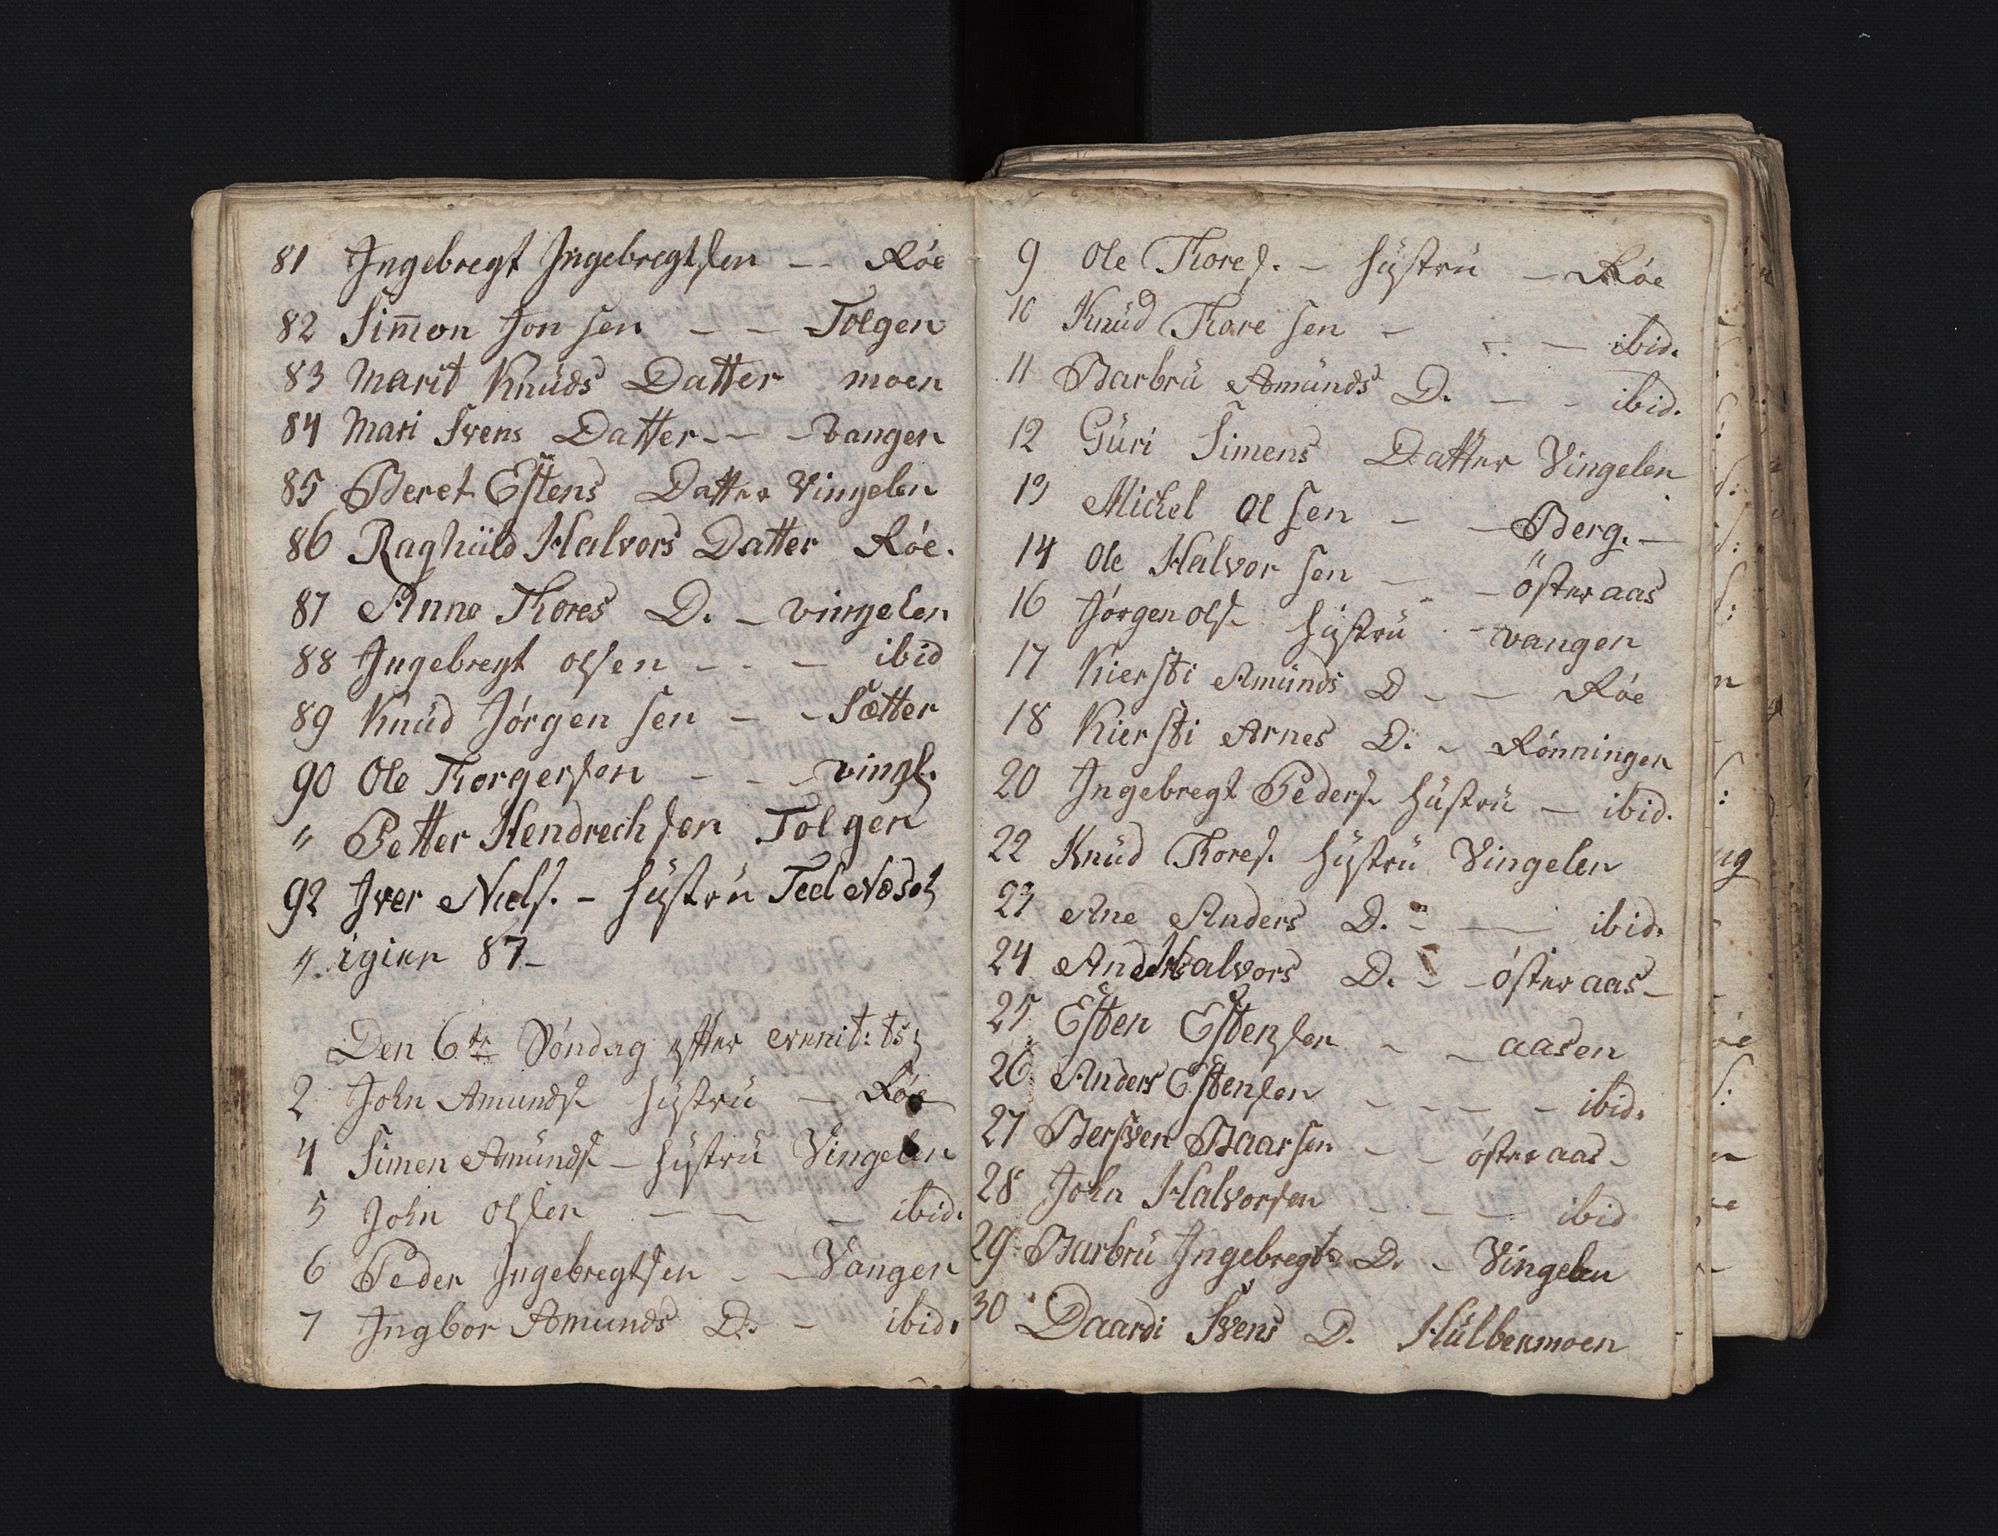 81 Ingebregt Ingebregtsen — Røe
82 Sim̄on Jon sen — — Tolgen
83 Marit Knuds Datter moen
84 Mari Svens Datter — — vangen
85 Beret Estens Datter Vingelen
86 Raghuld Halvors Datter Røe.
87 Anne Thores D. — vingelen
88 Ingebregt olsen — — — ibid
89 Knud Jørgen sen — — Sætter
90 Ole Thorgersen — — — vingl.
" Petter Hendrechsen Tolgen
92 Iver Niels. — Hustru
". igien 87 —
Den 6te Søndag efter
2 John Amunds. Hustru — Røe
4 Simen Amunds. — Hustru Vingelen
5 John Olsen — — — ibid.
6 Peder Ingebregtsen — — Vangen
7 Ingbor Amunds D. — ibid.
9 Ole Thores. — Hustru — Røe
10 Knud Thore sen — — — ibid.
11 Barbru Amunds D. — — ibid.
12 Guri Simens Datter Vingelen
13 Michel Ol sen — — Berg. —
14 Ole Halvor sen — — østeraas
16 Jørgen ols. Hustru — vangen
17 Kiersti Amunds D — — Røe
18 Kiersti Arnes D. — Rønningen
20 Ingebregt Peders. Hustru — ibid.
22 Knud Thores. Hustru Vingelen
23 Ane Anders D. — — — ibid.
24 Halvors D. — — østeraas —
25 Esten Estensen — — aasen
26 Anders Estensen — — — — ibid.
27 Bersven Baarsen — — østeraas —
28 John Halvorsen — — — ibid
29 Barbru Ingebregts D. — Vingelen
30 Daardi Svens D. Hulbermoen